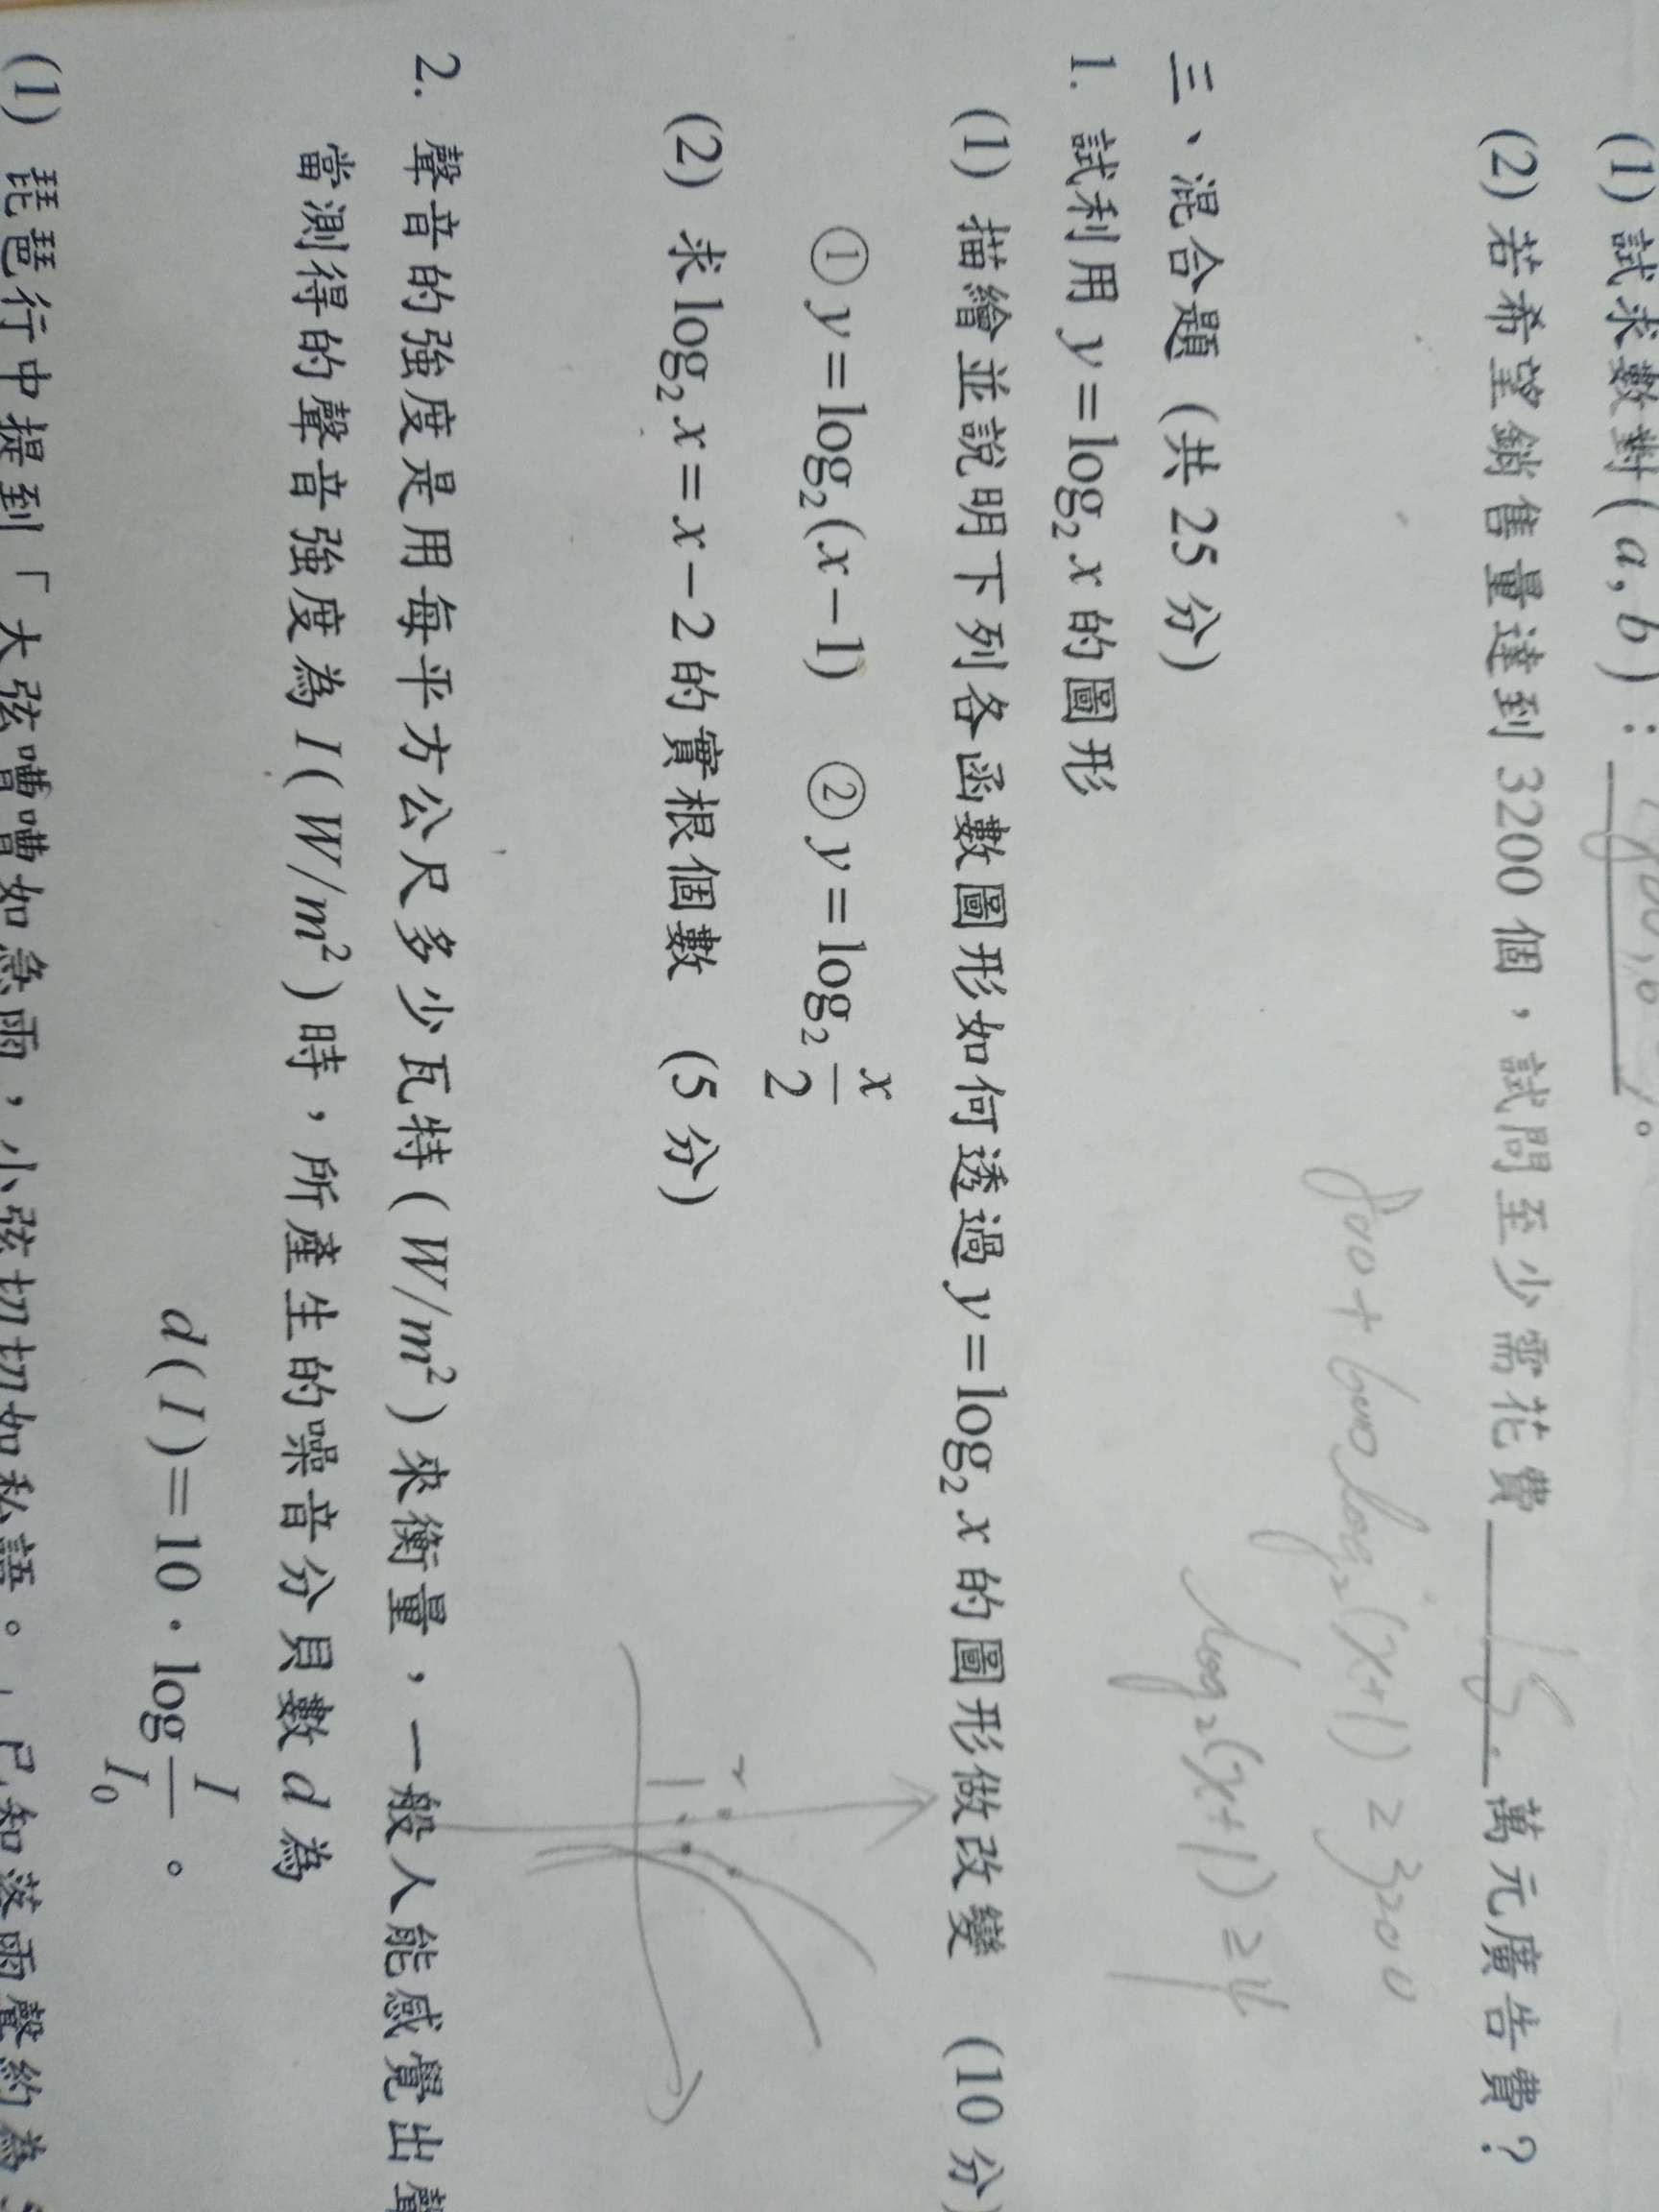 (1) 試求數對(a, b)：
(2) 若希望銷售量達到 3200 個，試問至少需花費 15 萬元廣告費？
800+600log₂(x+1) ≥ 3200
log₂(x+1) ≥ 4
三、混合題（共 25 分）
1. 試利用 y=log₂x 的圖形
(1) 描繪並說明下列各函數圖形如何透過 y=log₂x 的圖形做改變 （10 分）
① y=log₂(x−1) ② y=log₂ x/2
(2) 求 log₂x=x−2 的實根個數 （5 分）
1 2
2. 聲音的強度是用每平方公尺多少瓦特(W/m²)來衡量，一般人能感覺出聲
當測得的聲音強度為 I(W/m²)時，所產生的噪音分貝數 d 為
d(I)=10·log I/I₀。
(1) 琵琶行中提到「大弦嘈嘈如急雨，小弦切切如私語。」已知落雨聲約為